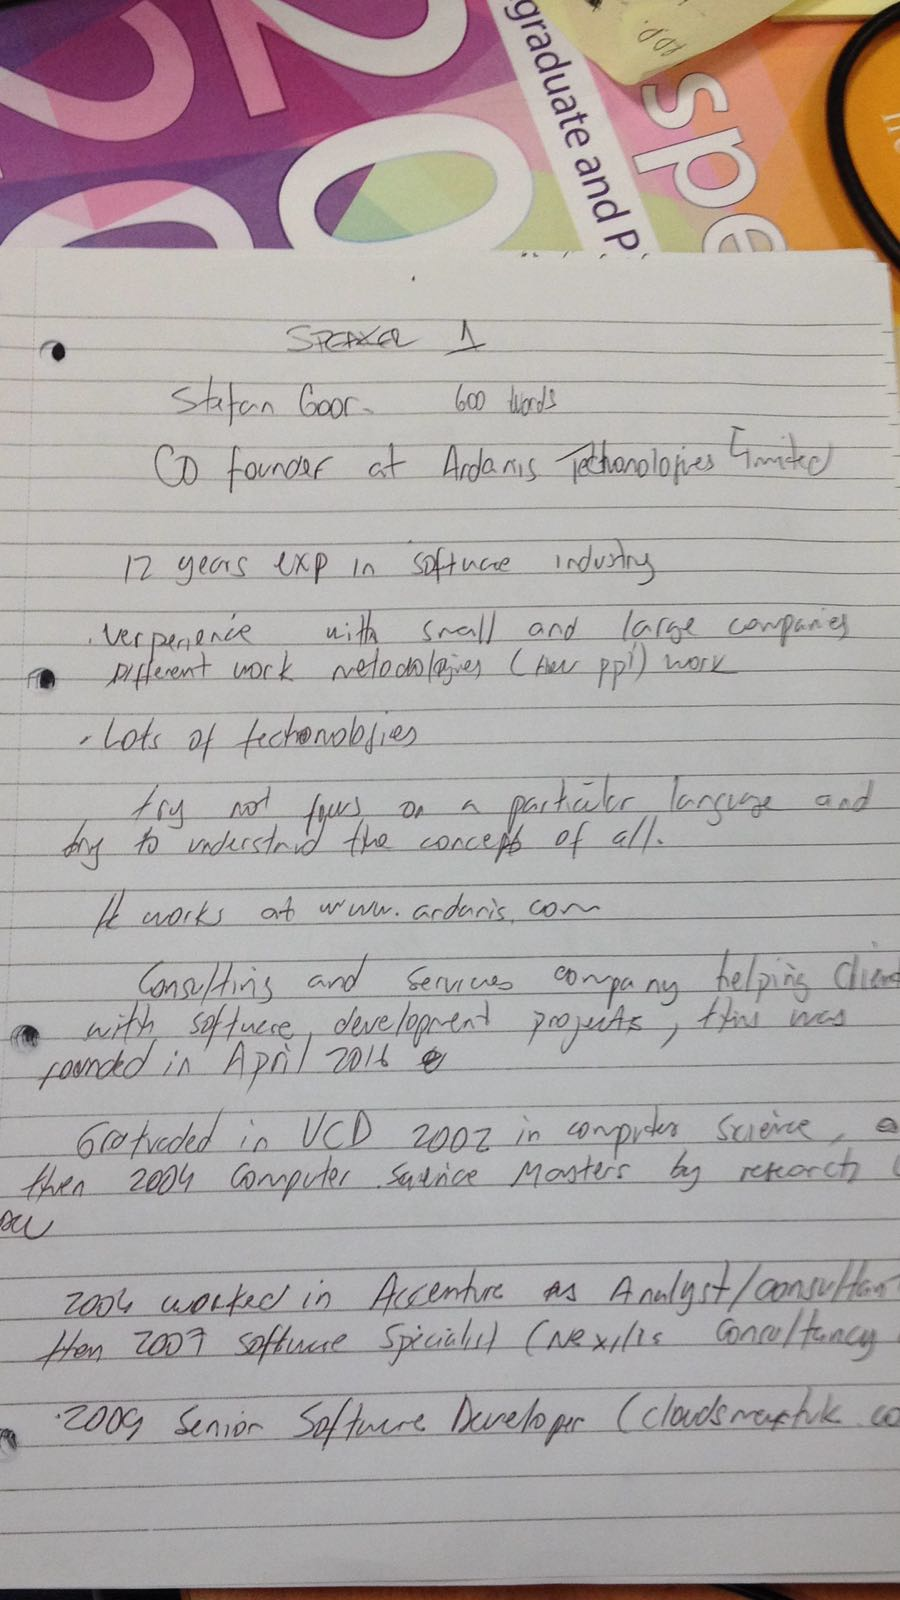 graduate and P
spe
20
SPEAKER 1
Stefan Goor. 600 words
CO founder at Ardanis Techonologies Limited
12 years exp in software industry
. Verperience with small and large companies
Different work metodologies ( ppl) work
. Lots of techonologies
try not focus on a particular language and
try to understand the concepts of all.
He works at www.ardanis.com
Consulting and services company helping Client
with software development projects, this was
founded in April 2016
Gratuded in UCD 2002 in computer science,
then 2004 Computer Science Masters by research
2004 worked in Accenture as Analyst/consultan
then 2007 software Specialist (Nexilis Consultancy
. 2009 Senior Software Developer (